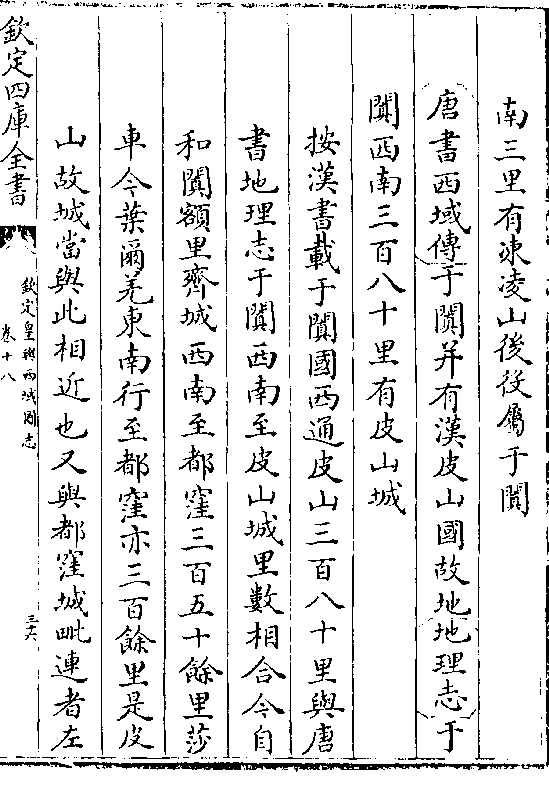 南三里有凍凌山後役屬于闐
唐書西域傳于闐并有漢皮山國故地地理志于
闐西南三百八十里有皮山城
按漢書載于闐國西通皮山三百八十里與唐
書地理志于闐西南至皮山城里數相合今自
和闐額里齊城西南至都窪三百五十餘里莎
車今葉爾羌東南行至都窪亦三百餘里是皮
山故城當與此相近也又與都窪城毗連者左
欽定四庫全書
欽定皇輿西域圖志
卷十八
三六